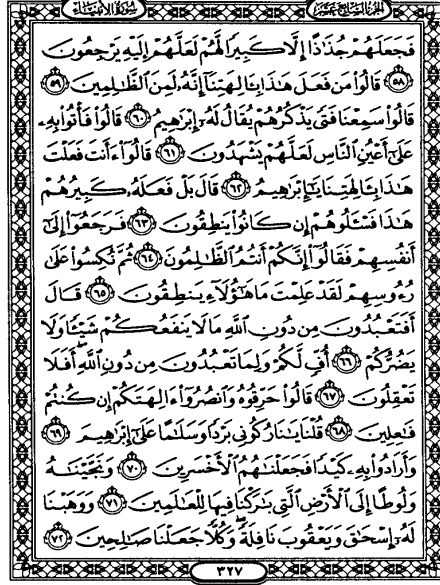 الجزء السابع عشر
سورة الأنبياء
فَجَعَلَهُمْ جُذَٰذًا إِلَّا كَبِيرًا لَّهُمْ لَعَلَّهُمْ إِلَيْهِ يَرْجِعُونَ
٥٨ قَالُوا۟ مَن فَعَلَ هَٰذَا بِـَٔالِهَتِنَآ إِنَّهُۥ لَمِنَ ٱلظَّٰلِمِينَ ٥٩
قَالُوا۟ سَمِعْنَا فَتًى يَذْكُرُهُمْ يُقَالُ لَهُۥٓ إِبْرَٰهِيمُ ٦٠ قَالُوا۟ فَأْتُوا۟ بِهِۦ
عَلَىٰٓ أَعْيُنِ ٱلنَّاسِ لَعَلَّهُمْ يَشْهَدُونَ ٦١ قَالُوٓا۟ ءَأَنتَ فَعَلْتَ
هَٰذَا بِـَٔالِهَتِنَا يَٰٓإِبْرَٰهِيمُ ٦٢ قَالَ بَلْ فَعَلَهُۥ كَبِيرُهُمْ
هَٰذَا فَسْـَٔلُوهُمْ إِن كَانُوا۟ يَنطِقُونَ ٦٣ فَرَجَعُوٓا۟ إِلَىٰٓ
أَنفُسِهِمْ فَقَالُوٓا۟ إِنَّكُمْ أَنتُمُ ٱلظَّٰلِمُونَ ٦٤ ثُمَّ نُكِسُوا۟ عَلَىٰ
رُءُوسِهِمْ لَقَدْ عَلِمْتَ مَا هَٰٓؤُلَآءِ يَنطِقُونَ ٦٥ قَالَ
أَفَتَعْبُدُونَ مِن دُونِ ٱللَّهِ مَا لَا يَنفَعُكُمْ شَيْـًٔا وَلَا
يَضُرُّكُمْ ٦٦ أُفٍّ لَّكُمْ وَلِمَا تَعْبُدُونَ مِن دُونِ ٱللَّهِ أَفَلَا
تَعْقِلُونَ ٦٧ قَالُوا۟ حَرِّقُوهُ وَٱنصُرُوٓا۟ ءَالِهَتَكُمْ إِن كُنتُمْ
فَٰعِلِينَ ٦٨ قُلْنَا يَٰنَارُ كُونِى بَرْدًا وَسَلَٰمًا عَلَىٰٓ إِبْرَٰهِيمَ ٦٩
وَأَرَادُوا۟ بِهِۦ كَيْدًا فَجَعَلْنَٰهُمُ ٱلْأَخْسَرِينَ ٧٠ وَنَجَّيْنَٰهُ
وَلُوطًا إِلَى ٱلْأَرْضِ ٱلَّتِى بَٰرَكْنَا فِيهَا لِلْعَٰلَمِينَ ٧١ وَوَهَبْنَا
لَهُۥٓ إِسْحَٰقَ وَيَعْقُوبَ نَافِلَةً وَكُلًّا جَعَلْنَا صَٰلِحِينَ ٧٢
٣٢٧